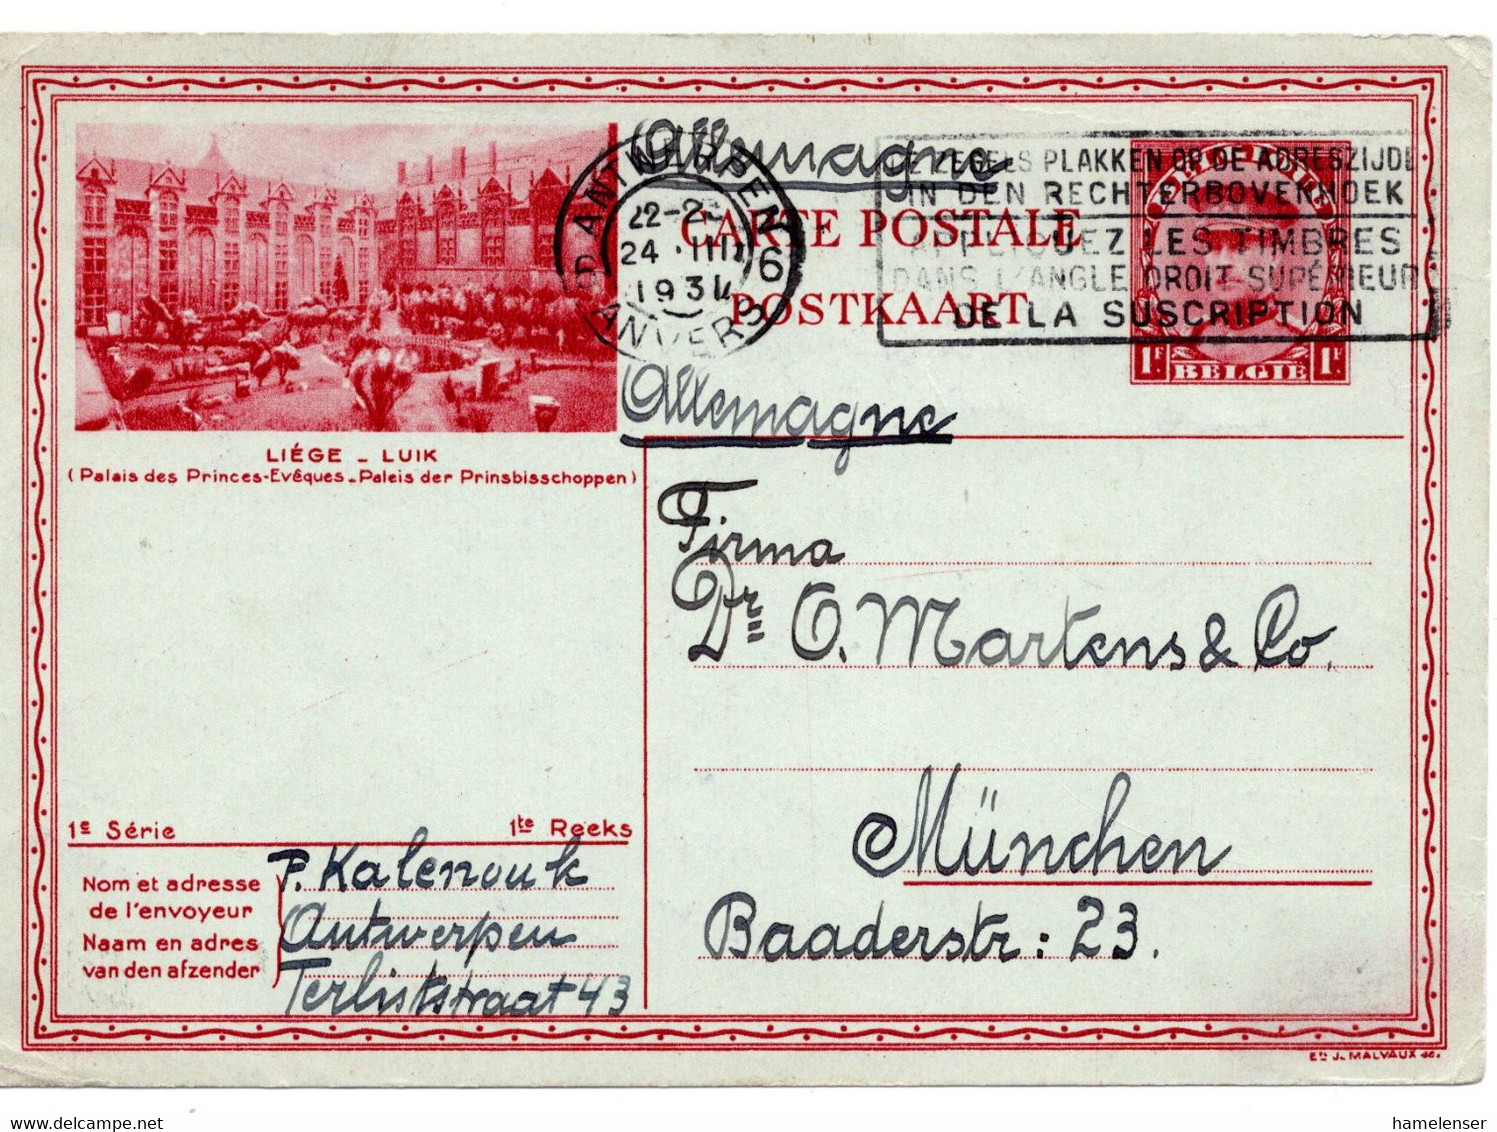 Allemagne
ANTWERPEN 6
22-2
24 · III
1934
ANVERS
DE ZEGELS PLAKKEN OP DE ADRESZIJDE
IN DEN RECHTERBOVENHOEK
APPLIQUEZ LES TIMBRES
DANS L'ANGLE DROIT SUPÉRIEUR
DE LA SUSCRIPTION
CARTE POSTALE
POSTKAART
1F BELGIE 1F
Allemagne
LIÉGE - LUIK
(Palais des Princes-Evêques - Paleis der Prinsbisschoppen)
Firma
Dr O. Martens & Co.
München
Baaderstr: 23.
1e Série
1te Reeks
Nom et adresse
de l'envoyeur
Naam en adres
van den afzender
P. Kalenouk
Antwerpen
Terliststraat 43
Ets J. MALVAUX
www.delcampe.net
hamelenser